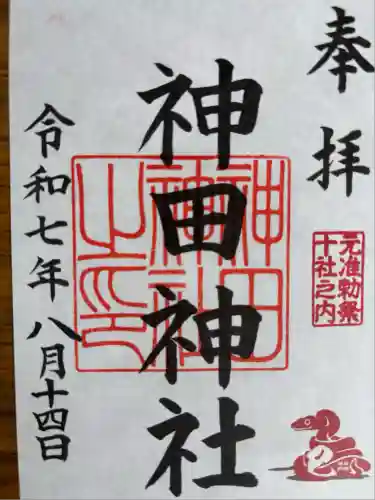 奉拝
元准勅祭
十社之内
神田神社
神田神社之印
令和七年八月十四日